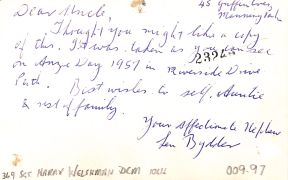 45 Griffin Cres,
Manning Park
Dear Uncle,
Thought you might like a copy
of this. It was taken as you can see
23945
on Anzac Day 1957 in Riverside Drive
Perth. Best wishes to self, Auntie
& rest of family.
Your Affectionate Nephew
Len Bydder
369 SGT HARRY WELSHMAN DCM
009-97